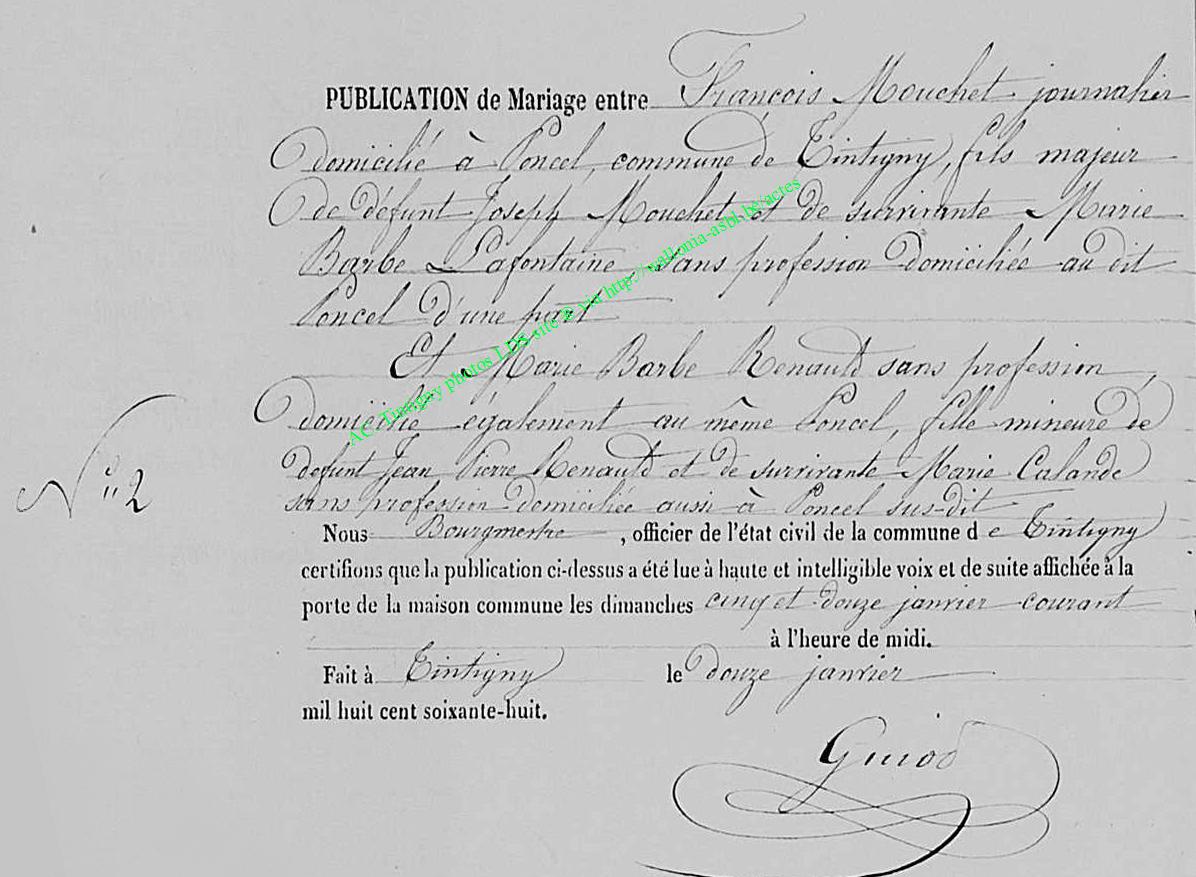 PUBLICATION de Mariage entre François Mouchet journalier
domicilié à Poncel, commune de Tintigny, fils majeur
de défunt Joseph Mouchet et de survivante Marie
Barbe Lafontaine, sans profession domiciliée au dit
Poncel d'une part
Et Marie Barbe Renauld sans profession,
domiciliée également au même Poncel, fille mineure de
defunt Jean Pierre Renauld et de survivante Marie Calande
sans profession domiciliée aussi à Poncel sus-dit
N° 2
Nous Bourgmestre, officier de l'état civil de la commune de Tintigny
certifions que la publication ci-dessus a été lue à haute et intelligible voix et de suite affichée à la
porte de la maison commune les dimanches cinq et douze janvier courant
à l'heure de midi.
Fait à Tintigny le douze janvier
mil huit cent soixante-huit.
AC Tintigny photos LDS site © via http://wallonia-asbl.be/actes